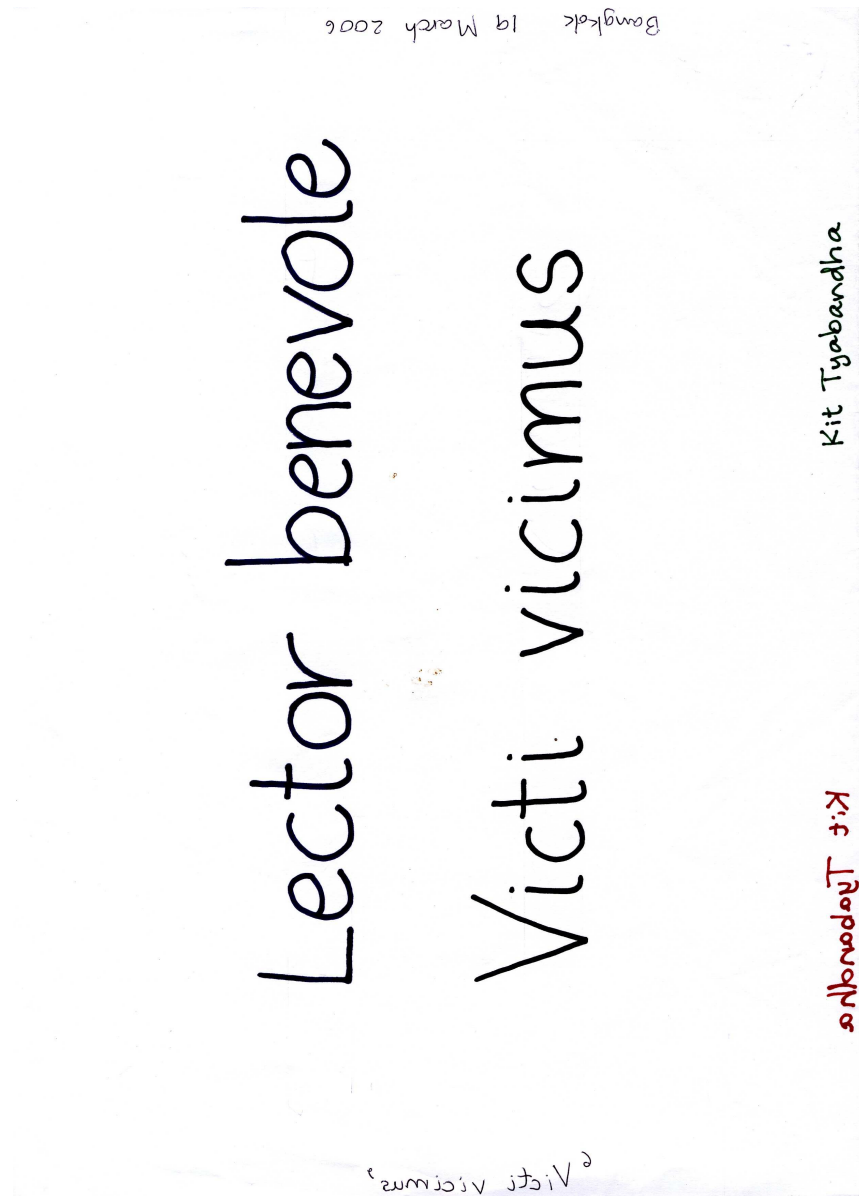 Bangkok 19 March 2006
Lector benevole
Victi vicimus
Kit Tyabandha
Kit Tyabandha
‘Victi vicimus’